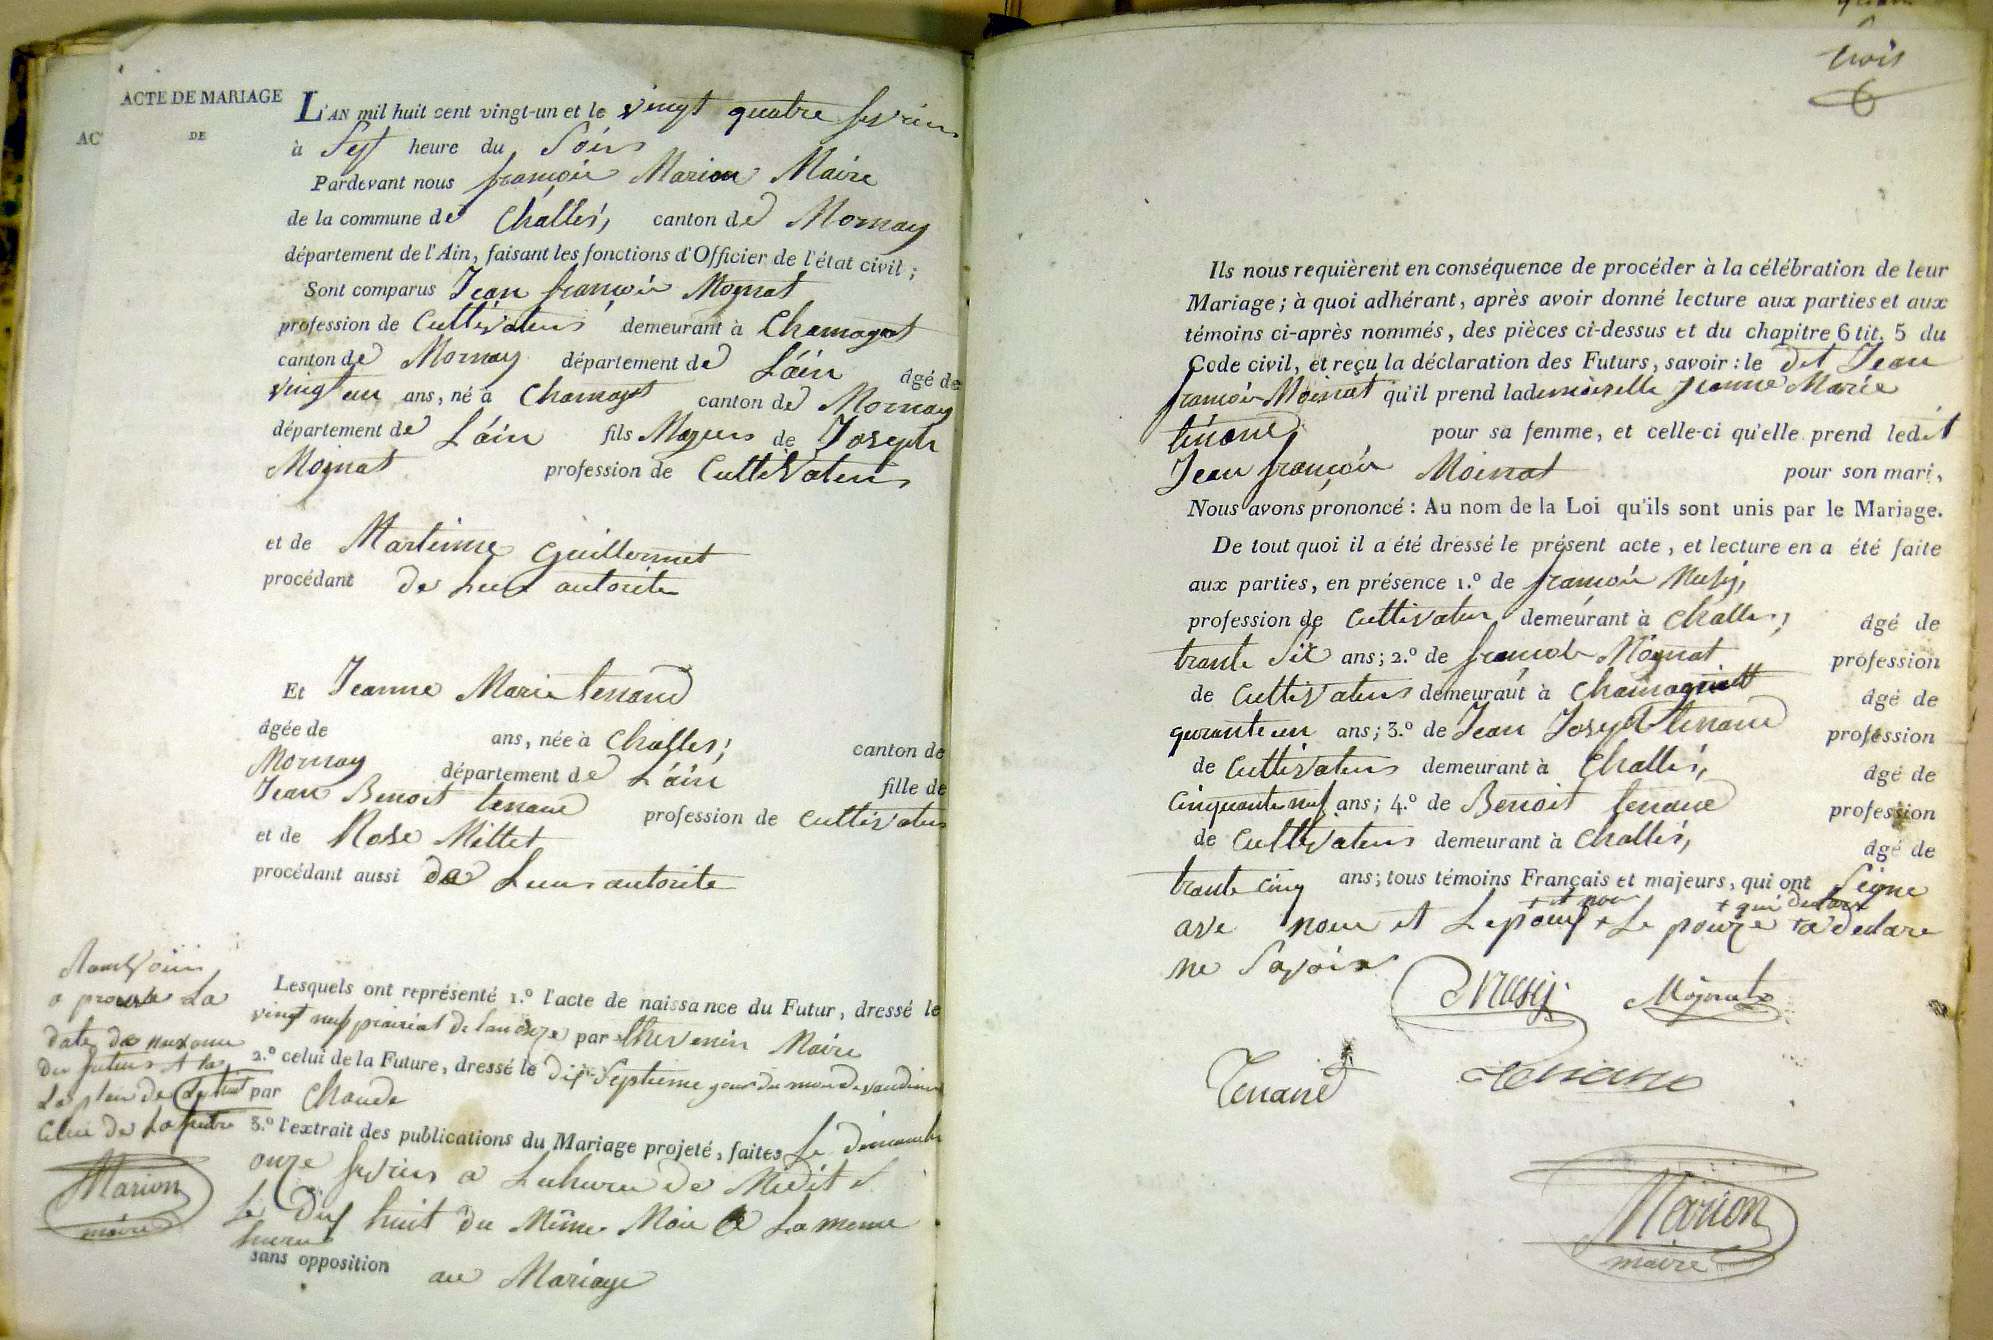 ACTE DE MARIAGE
AC
DE
L'AN mil huit cent vingt-un et le vingt quatre fevrier
à Sept heure du Soir
Pardevant nous françois Marion Maire
de la commune de Challes, canton de Mornay
département de l'Ain, faisant les fonctions d'Officier de l'état civil ;
Sont comparus Jean françois Moynat
profession de Cultivateur demeurant à Chamagnat
canton de Mornay département de L'ain âgé de
vingt un ans, né à Chamagnat canton de Mornay
département de L'ain fils Majeur de Joseph
Moynat profession de Cultivateur
et de Martinne Guillermet
procédant de Leur autorite
Et Jeanne Marie tenand
âgée de ans, née à Challes, canton de
Mornay département de L'ain fille de
Jean Benoit tenand profession de cultivateur
et de Rose Millet
procédant aussi de Leur autorite
Lesquels ont représenté 1.º l'acte de naissance du Futur, dressé le
vingt neuf prairial de Lan onze par thevenin Maire
2.º celui de la Future, dressé le dix Septieme jour du mois de
par Chaude
3.º l'extrait des publications du Mariage projeté, faites Le dimanche
onze fevrier a Lheure de Midit
Le dix huit du Même Mois a La meme
heure
sans opposition au Mariage
a La
date de
du futur et la
La place de
Celui de La future
Marion
maire
trois
Ils nous requièrent en conséquence de procéder à la célébration de leur
Mariage ; à quoi adhérant, après avoir donné lecture aux parties et aux
témoins ci-après nommés, des pièces ci-dessus et du chapitre 6 tit. 5 du
Code civil, et reçu la déclaration des Futurs, savoir : le dit Jean
françois Moinat qu'il prend lademoiselle Jeanne Marie
tenand pour sa femme, et celle-ci qu'elle prend ledit
Jean françois Moinat pour son mari,
Nous avons prononcé : Au nom de la Loi qu'ils sont unis par le Mariage.
De tout quoi il a été dressé le présent acte, et lecture en a été faite
aux parties, en présence 1.º de françois
profession de Cultivateur demeurant à Challes, âgé de
trante Six ans; 2.º de françois Moynat profession
de Cultivateur demeurant à Chamagniatt âgé de
quarante un ans; 3.º de Jean Joseph tenand profession
de Cultivateur demeurant à Challes, âgé de
Cinquante neuf ans; 4.º de Benoit tenand profession
de Cultivateur demeurant à Challes, âgé de
trante cinq ans; tous témoins Français et majeurs, qui ont Signe
+ et non + qui
ave nous et Lepouse + Le pouze + a declare
ne Savoir
Moynat
Tenand
tenand
Marion
maire